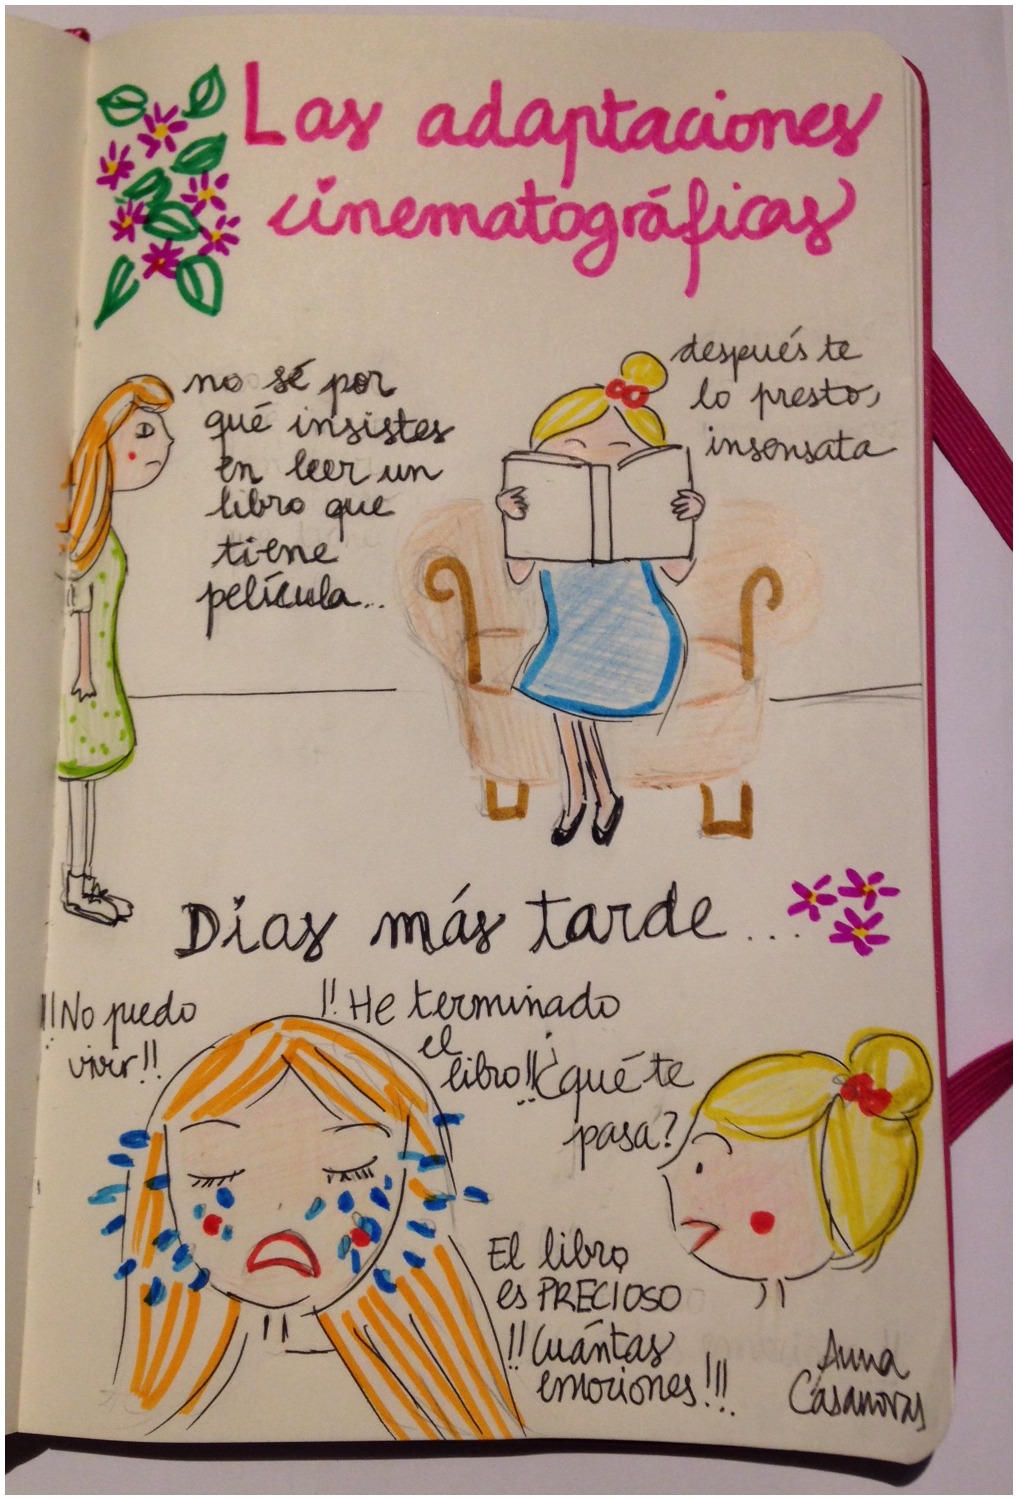 Las adaptaciones
cinematográficas
no sé por
qué insistes
en leer un
libro que
tiene
película...
después te
lo presto,
insensata
Dias más tarde...
!!No puedo
vivir!!
!!He terminado
el
libro!!
¿qué te
pasa?
El libro
es PRECIOSO
!!Cuántas
emociones!!!
Anna
Casanovas